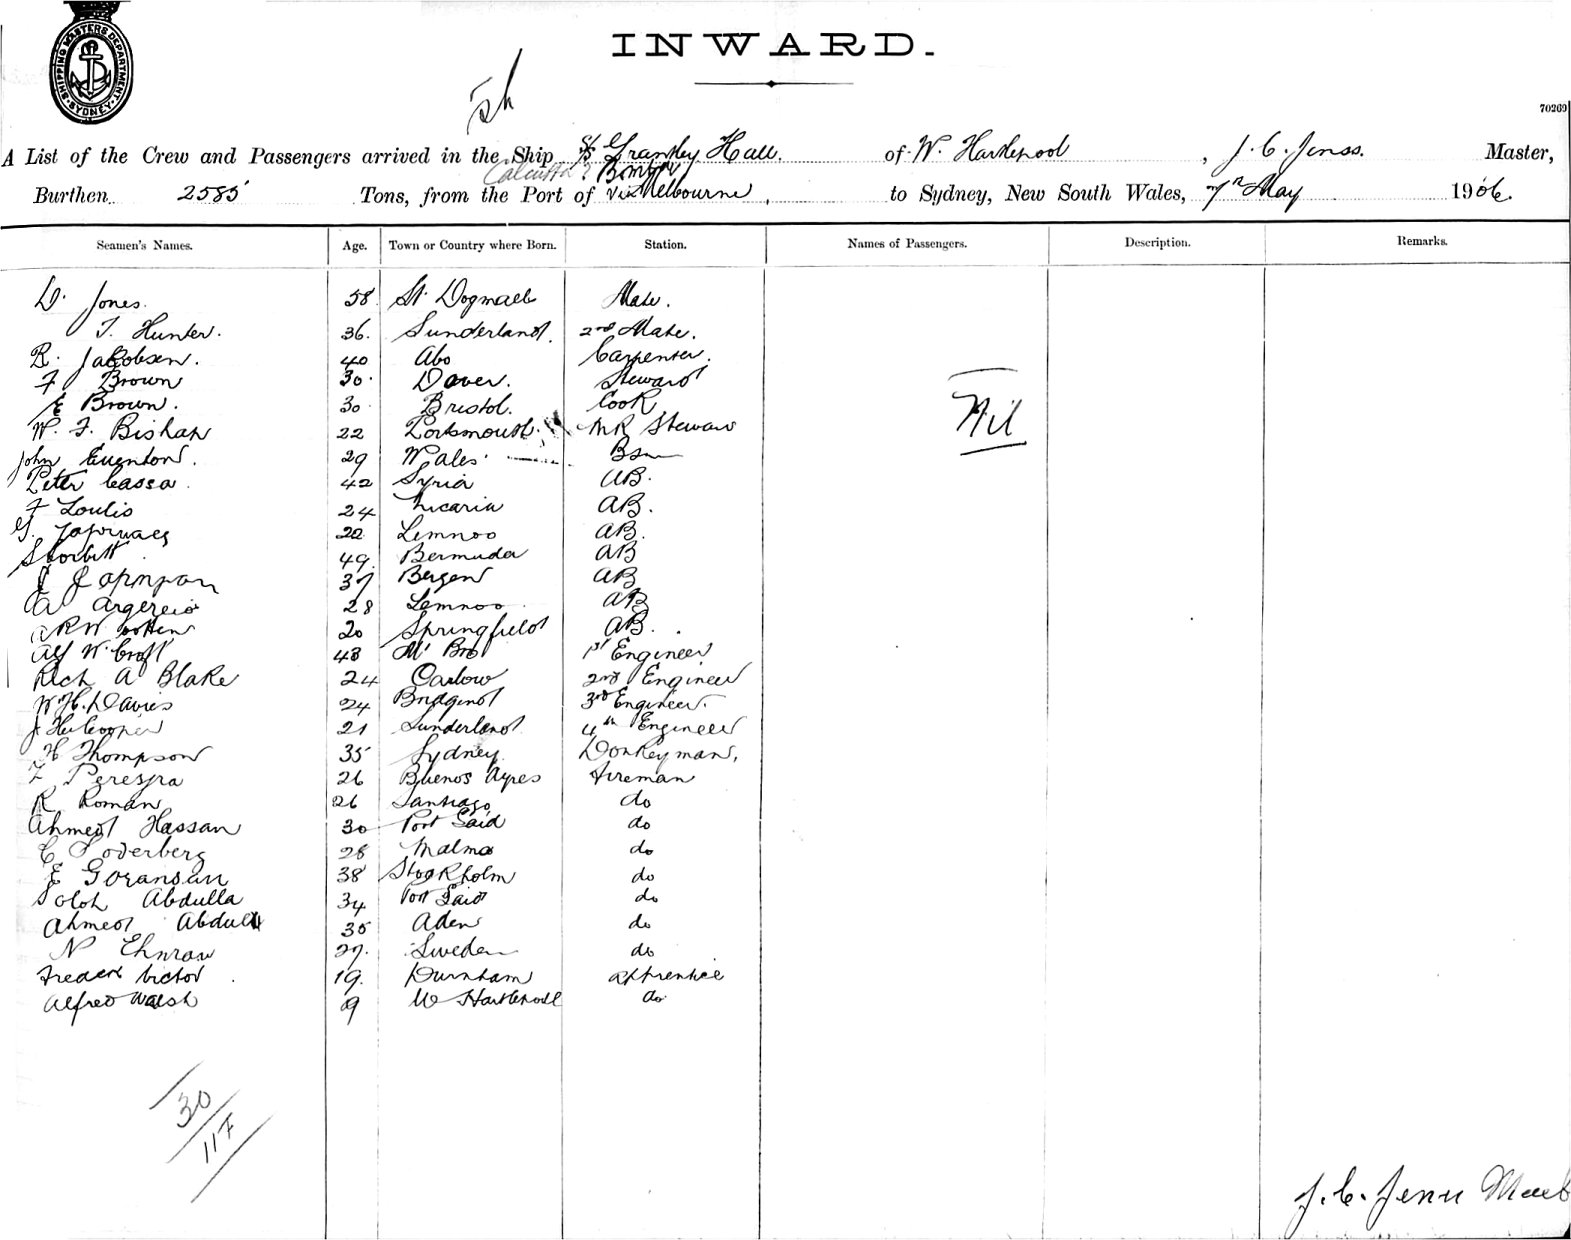 SHIPPING MASTERS DEPARTMENT
SYDNEY
INWARD.
70269
A List of the Crew and Passengers arrived in the Ship S/S Hall. of W. Hartlepool, J. C. Jenss. Master,
Calcutta & Bombay
Burthen 2585 Tons, from the Port of via Melbourne, to Sydney, New South Wales, 7th May 1906.
Seamen's Names. Age. Town or Country where Born. Station. Names of Passengers. Description. Remarks.
D. Jones. 58 St. Dogmaels Mate.
T. Hunter. 36. Sunderland. 2nd Mate.
R. Jacobsen. 40 Abo Carpenter.
F Brown 30. Dover. Steward
E Brown. 30 Bristol. Cook
W. F. Bishop 22 Portsmouth. MR Steward
John Eventon. 29 Wales Bsn
Peter Cassa 42 Syria AB.
F Loulis 24 Nicaria AB.
G. 22 Lemnos AB.
S Corbett 49. Bermuda AB
J 37 Bergen AB
A Argereio 28 Lemnos AB
A R Wootten 20 Springfield AB.
Alf W. Croft 43 1st Engineer
Rich A Blake 24 Carlow 2nd Engineer
W H. Davies 24 Bridgend 3rd Engineer.
J Cooper 21 Sunderland 4th Engineer
H Thompson 35 Sydney Donkeyman,
Z Peresjra 26 Buenos Ayres Fireman
R Roman 26 Santiago do
Ahmed Hassan 30 Port Said do
C Soderberg 28 Malmo do
E Goransan 38 Stogkholm do
Soloh Abdulla 34 Port Said do
Ahmed Abdull 35 Aden do
N 27. Sweden do
Frederk Victor 19. Durnham Apprentice
Alfred Walsh 19 W Hartlepool do
Nil
30
117
J. C. Jenss